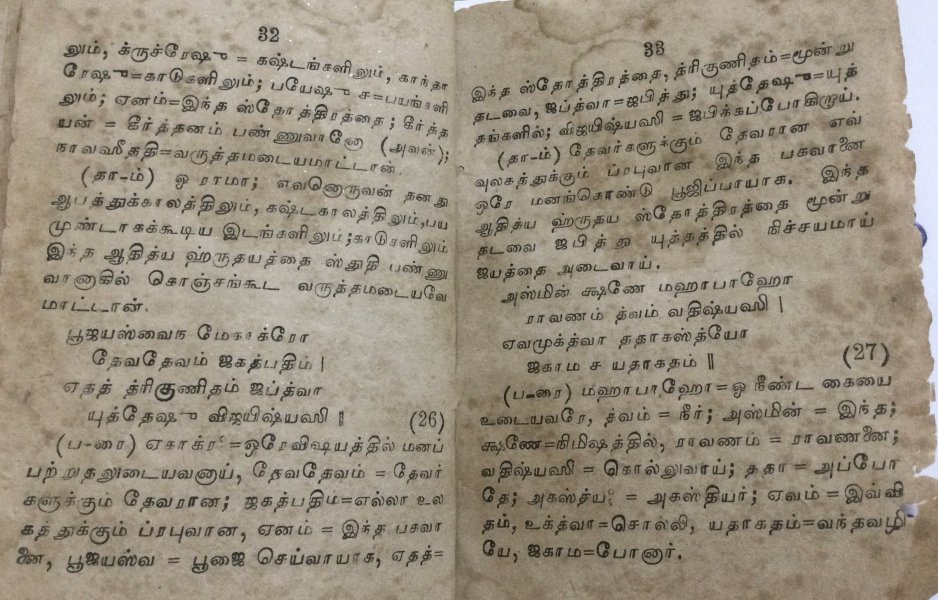 32
லும், க்ருச்ரேஷு = கஷ்டங்களிலும், காந்தா
ரேஷு=காடுகளிலும்; பயேஷு ச=பயங்களி
லும்; ஏனம்=இந்த ஸ்தோத்திரத்தை; கீர்த்த
யன் = கீர்த்தனம் பண்ணுவானோ (அவன்);
நாவஸீததி=வருத்தமடையமாட்டான்.
(தா-ம்) ஓ ராமா; எவனொருவன் தனது
ஆபத்துக்காலத்திலும், கஷ்டகாலத்திலும்,பய
முண்டாகக்கூடிய இடங்களிலும்;காடுகளிலும்
இந்த ஆதித்ய ஹ்ருதயத்தை ஸ்துதி பண்ணு
வானாகில் கொஞ்சங்கூட வருத்தமடையவே
மாட்டான்.
பூஜயஸ்வைந மேகாக்ரோ
தேவதேவம் ஜகத்பதிம் |
ஏதத் த்ரிகுணிதம் ஜப்த்வா
யுத்தேஷு விஜயிஷ்யஸி || (26)
(ப-ரை) ஏகாக்ர:=ஒரேவிஷயத்தில் மனப்
பற்றுதலுடையவனாய், தேவதேவம் = தேவர்
களுக்கும் தேவரான; ஜகத்பதிம்=எல்லா உல
கத்துக்கும் ப்ரபுவான, ஏனம் = இந்த பகவா
னை, பூஜயஸ்வ = பூஜை செய்வாயாக, ஏதத்=
33
இந்த ஸ்தோத்திரத்தை, த்ரிகுணிதம்=மூன்று
தடவை, ஜப்த்வா=ஜபித்து; யுத்தேஷு=யுத்
தங்களில்; விஜயிஷ்யஸி = ஜபிக்கப்போகிறாய்.
(தா-ம்) தேவர்களுக்கும் தேவரான எவ்
வுலகத்துக்கும் ப்ரபுவான இந்த பகவானை
ஒரே மனங்கொண்டு பூஜிப்பாயாக. இந்த
ஆதித்ய ஹ்ருதய ஸ்தோத்திரத்தை மூன்று
தடவை ஜபித்து யுத்தத்தில் நிச்சயமாய்
ஜயத்தை அடைவாய்.
அஸ்மின் க்ஷணே மஹாபாஹோ
ராவணம் த்வம் வதிஷ்யஸி |
ஏவமுக்த்வா ததாகஸ்த்யோ
ஜகாம ச யதாகதம் || (27)
(ப-ரை) மஹாபாஹோ=ஓ நீண்ட கையை
உடையவரே, த்வம் = நீர்; அஸ்மின் = இந்த;
க்ஷணே=நிமிஷத்தில், ராவணம் = ராவணனை;
வதிஷ்யஸி = கொல்லுவாய்; ததா = அப்போ
தே; அகஸ்த்ய: = அகஸ்தியர்; ஏவம் = இவ்வி
தம், உக்த்வா=சொல்லி, யதாகதம்=வந்தவழி
யே, ஜகாம=போனார்.